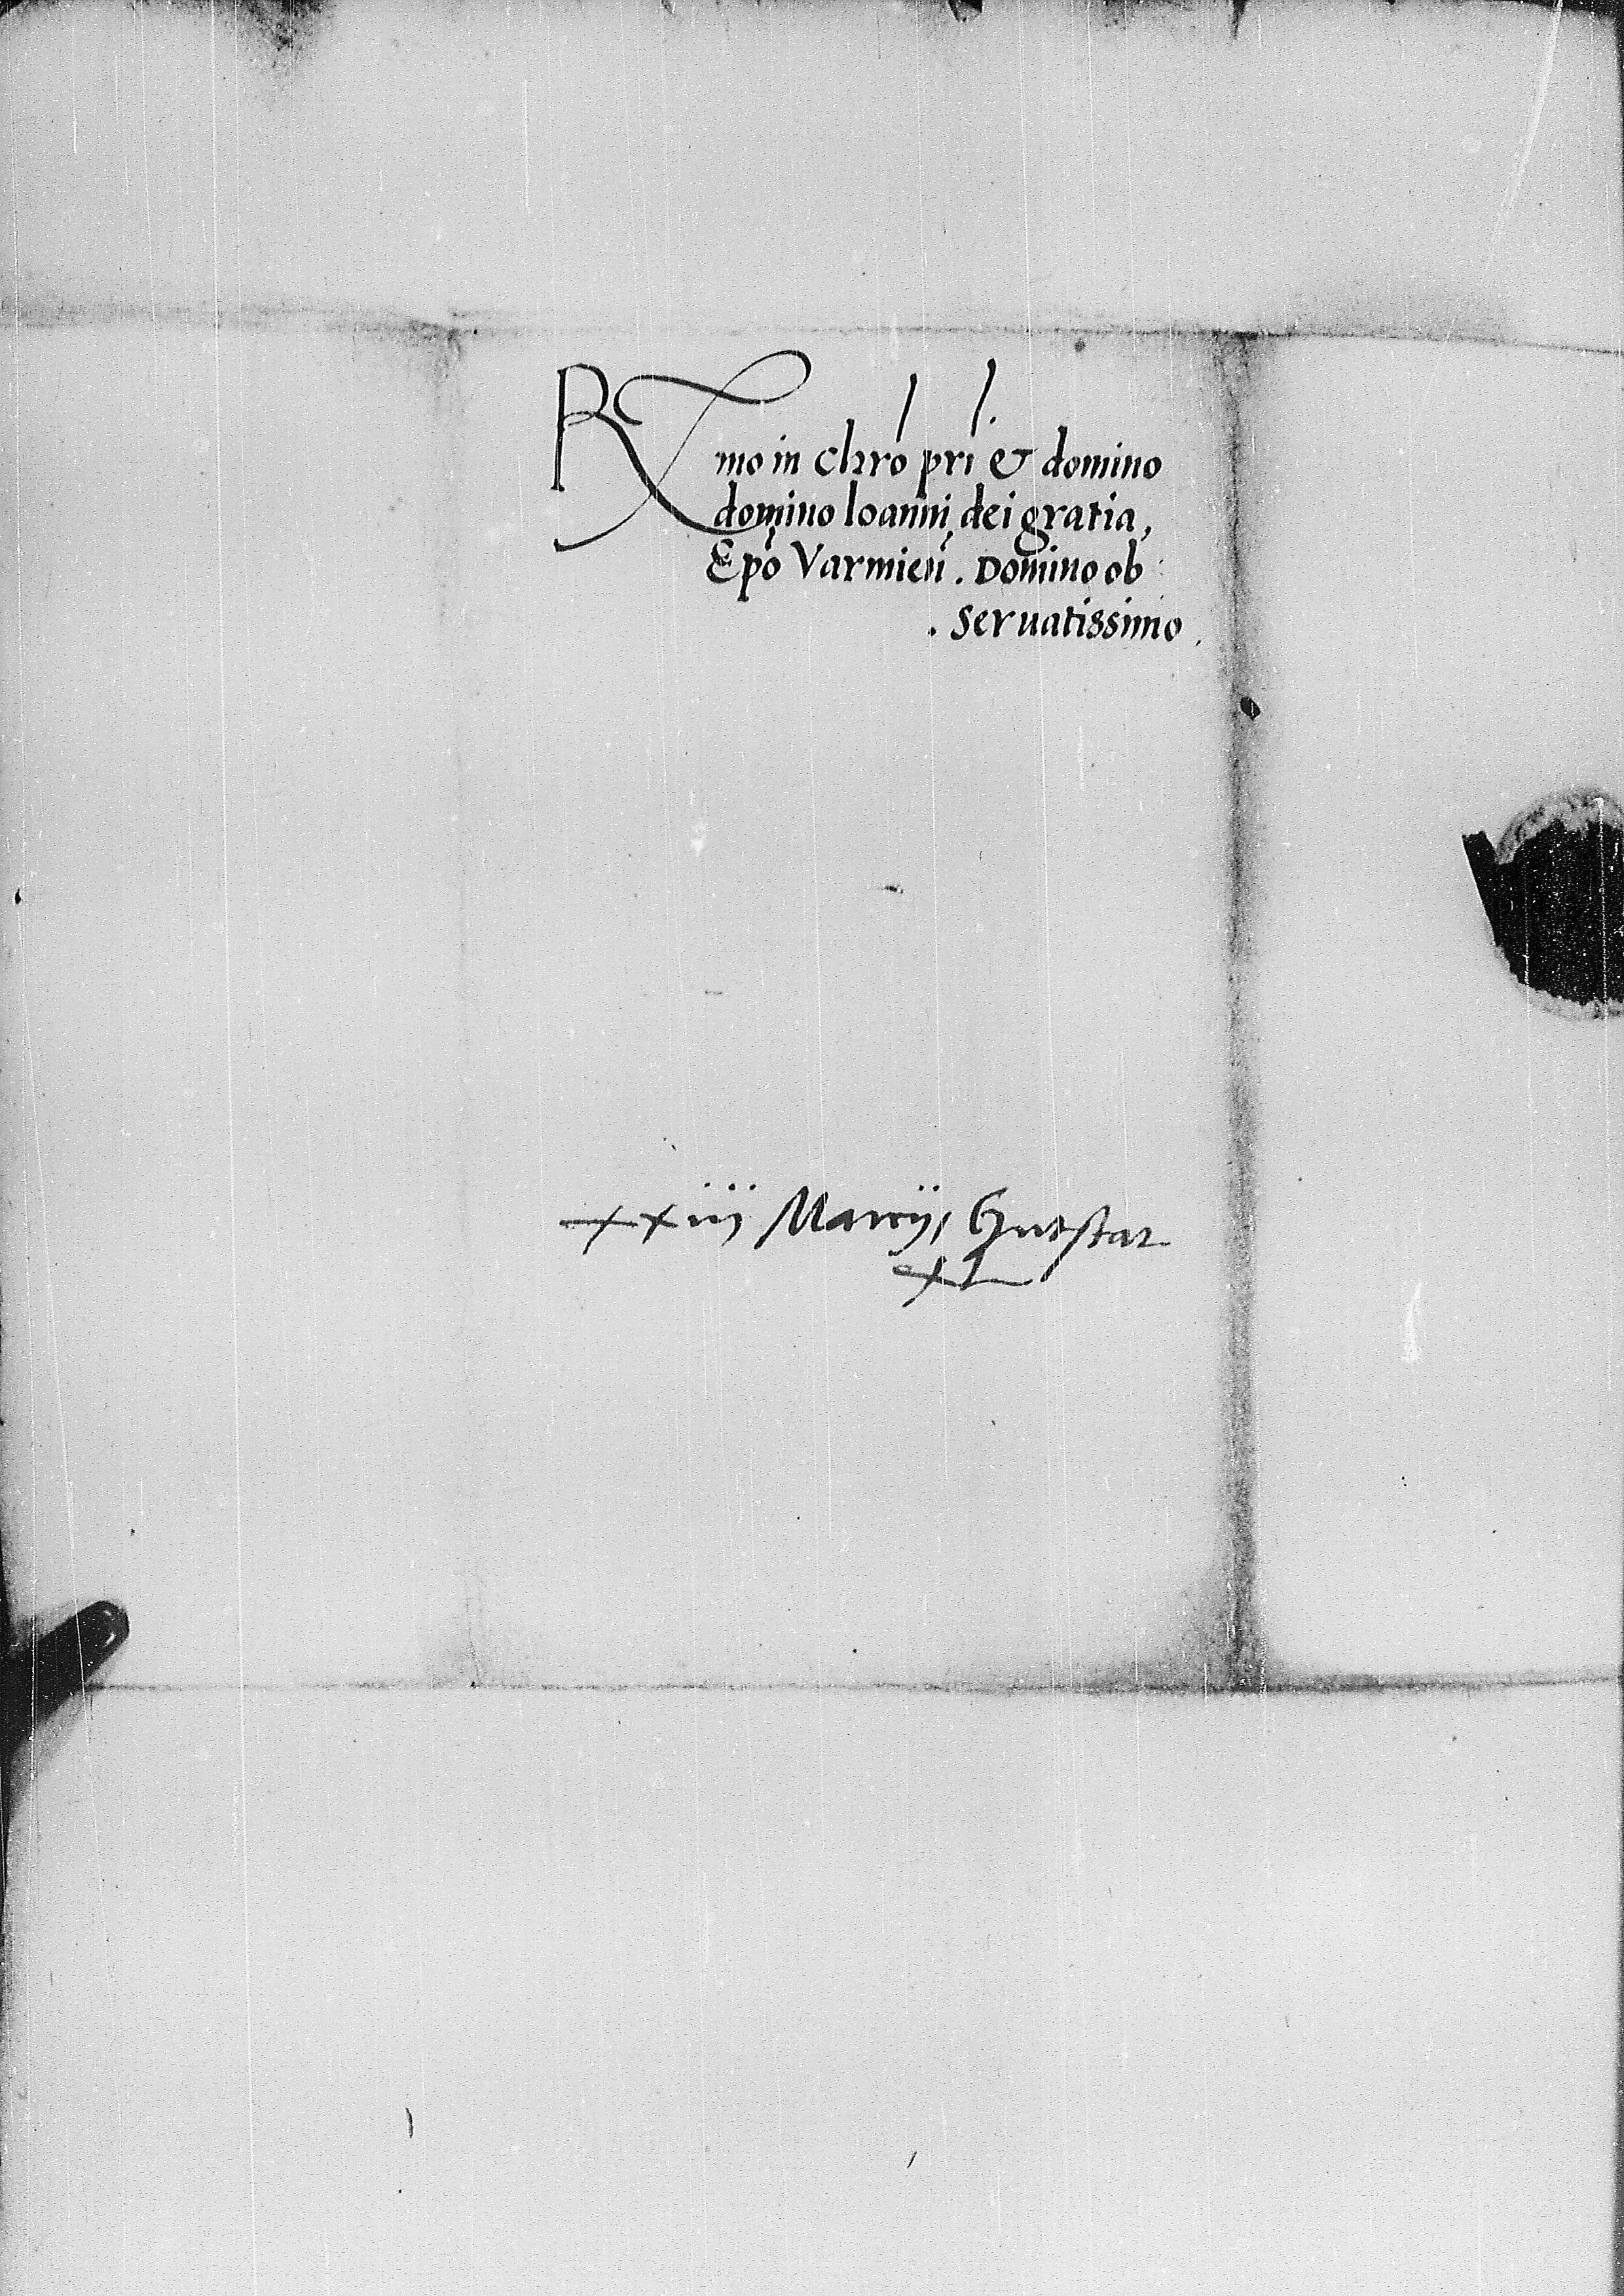 Rmo in chro pri & domino
domino Ioanni dei gratia,
Epo Varmien. Domino ob
. seruatissimo.
xxiii Marcij, Gutstat
xL